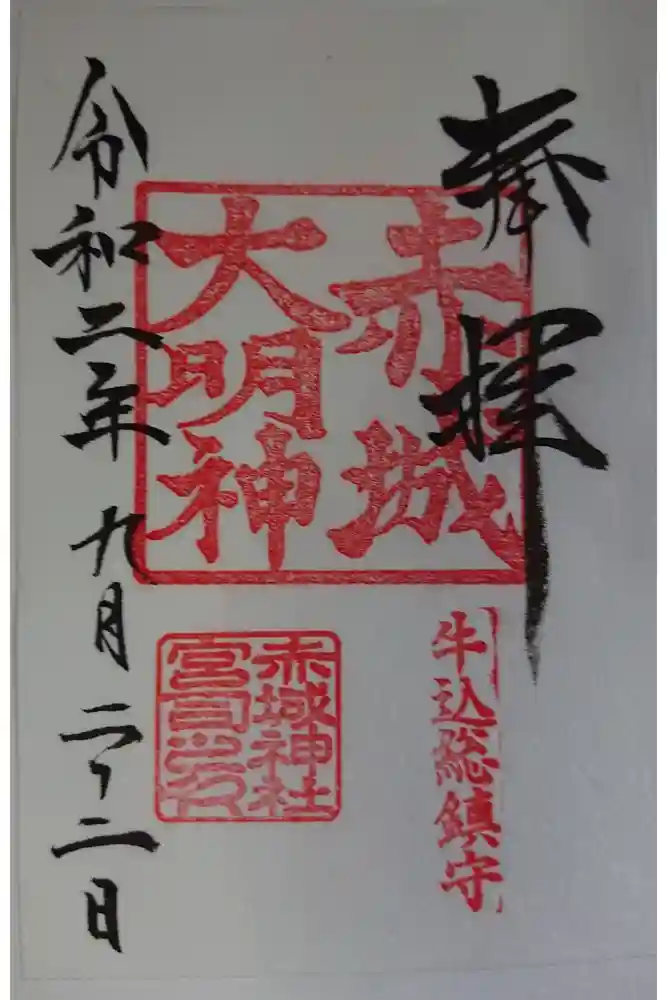 奉拝
赤城
大明神
牛込総鎮守
赤城神社
宮司之印
令和二年九月二十二日